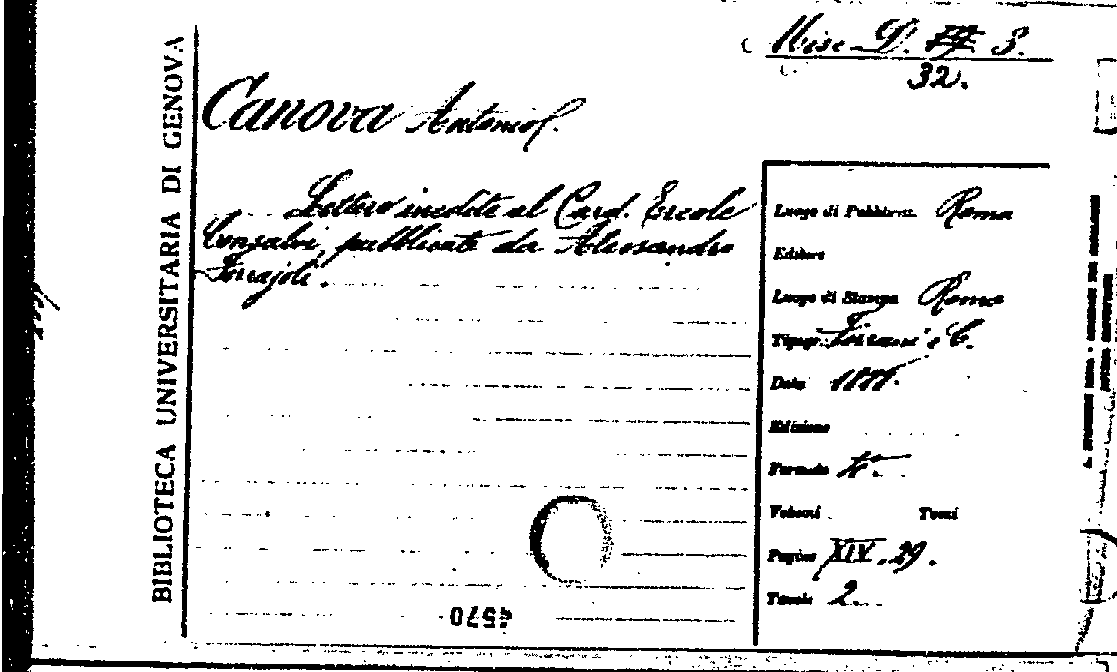 Misc. D. 3.
32.
BIBLIOTECA UNIVERSITARIA DI GENOVA
Canova Antonio.
Lettere inedite al Card. Ercole
Consalvi, pubblicate da Alessandro
Ferrajoli.
Luogo di Pubblicaz. Roma
Editore
Luogo di Stampa Roma
Tipogr. Forzani e C.
Data
Edizione
Formato
Volumi Tomi
Pagine XIV. 29.
Tavole 2.